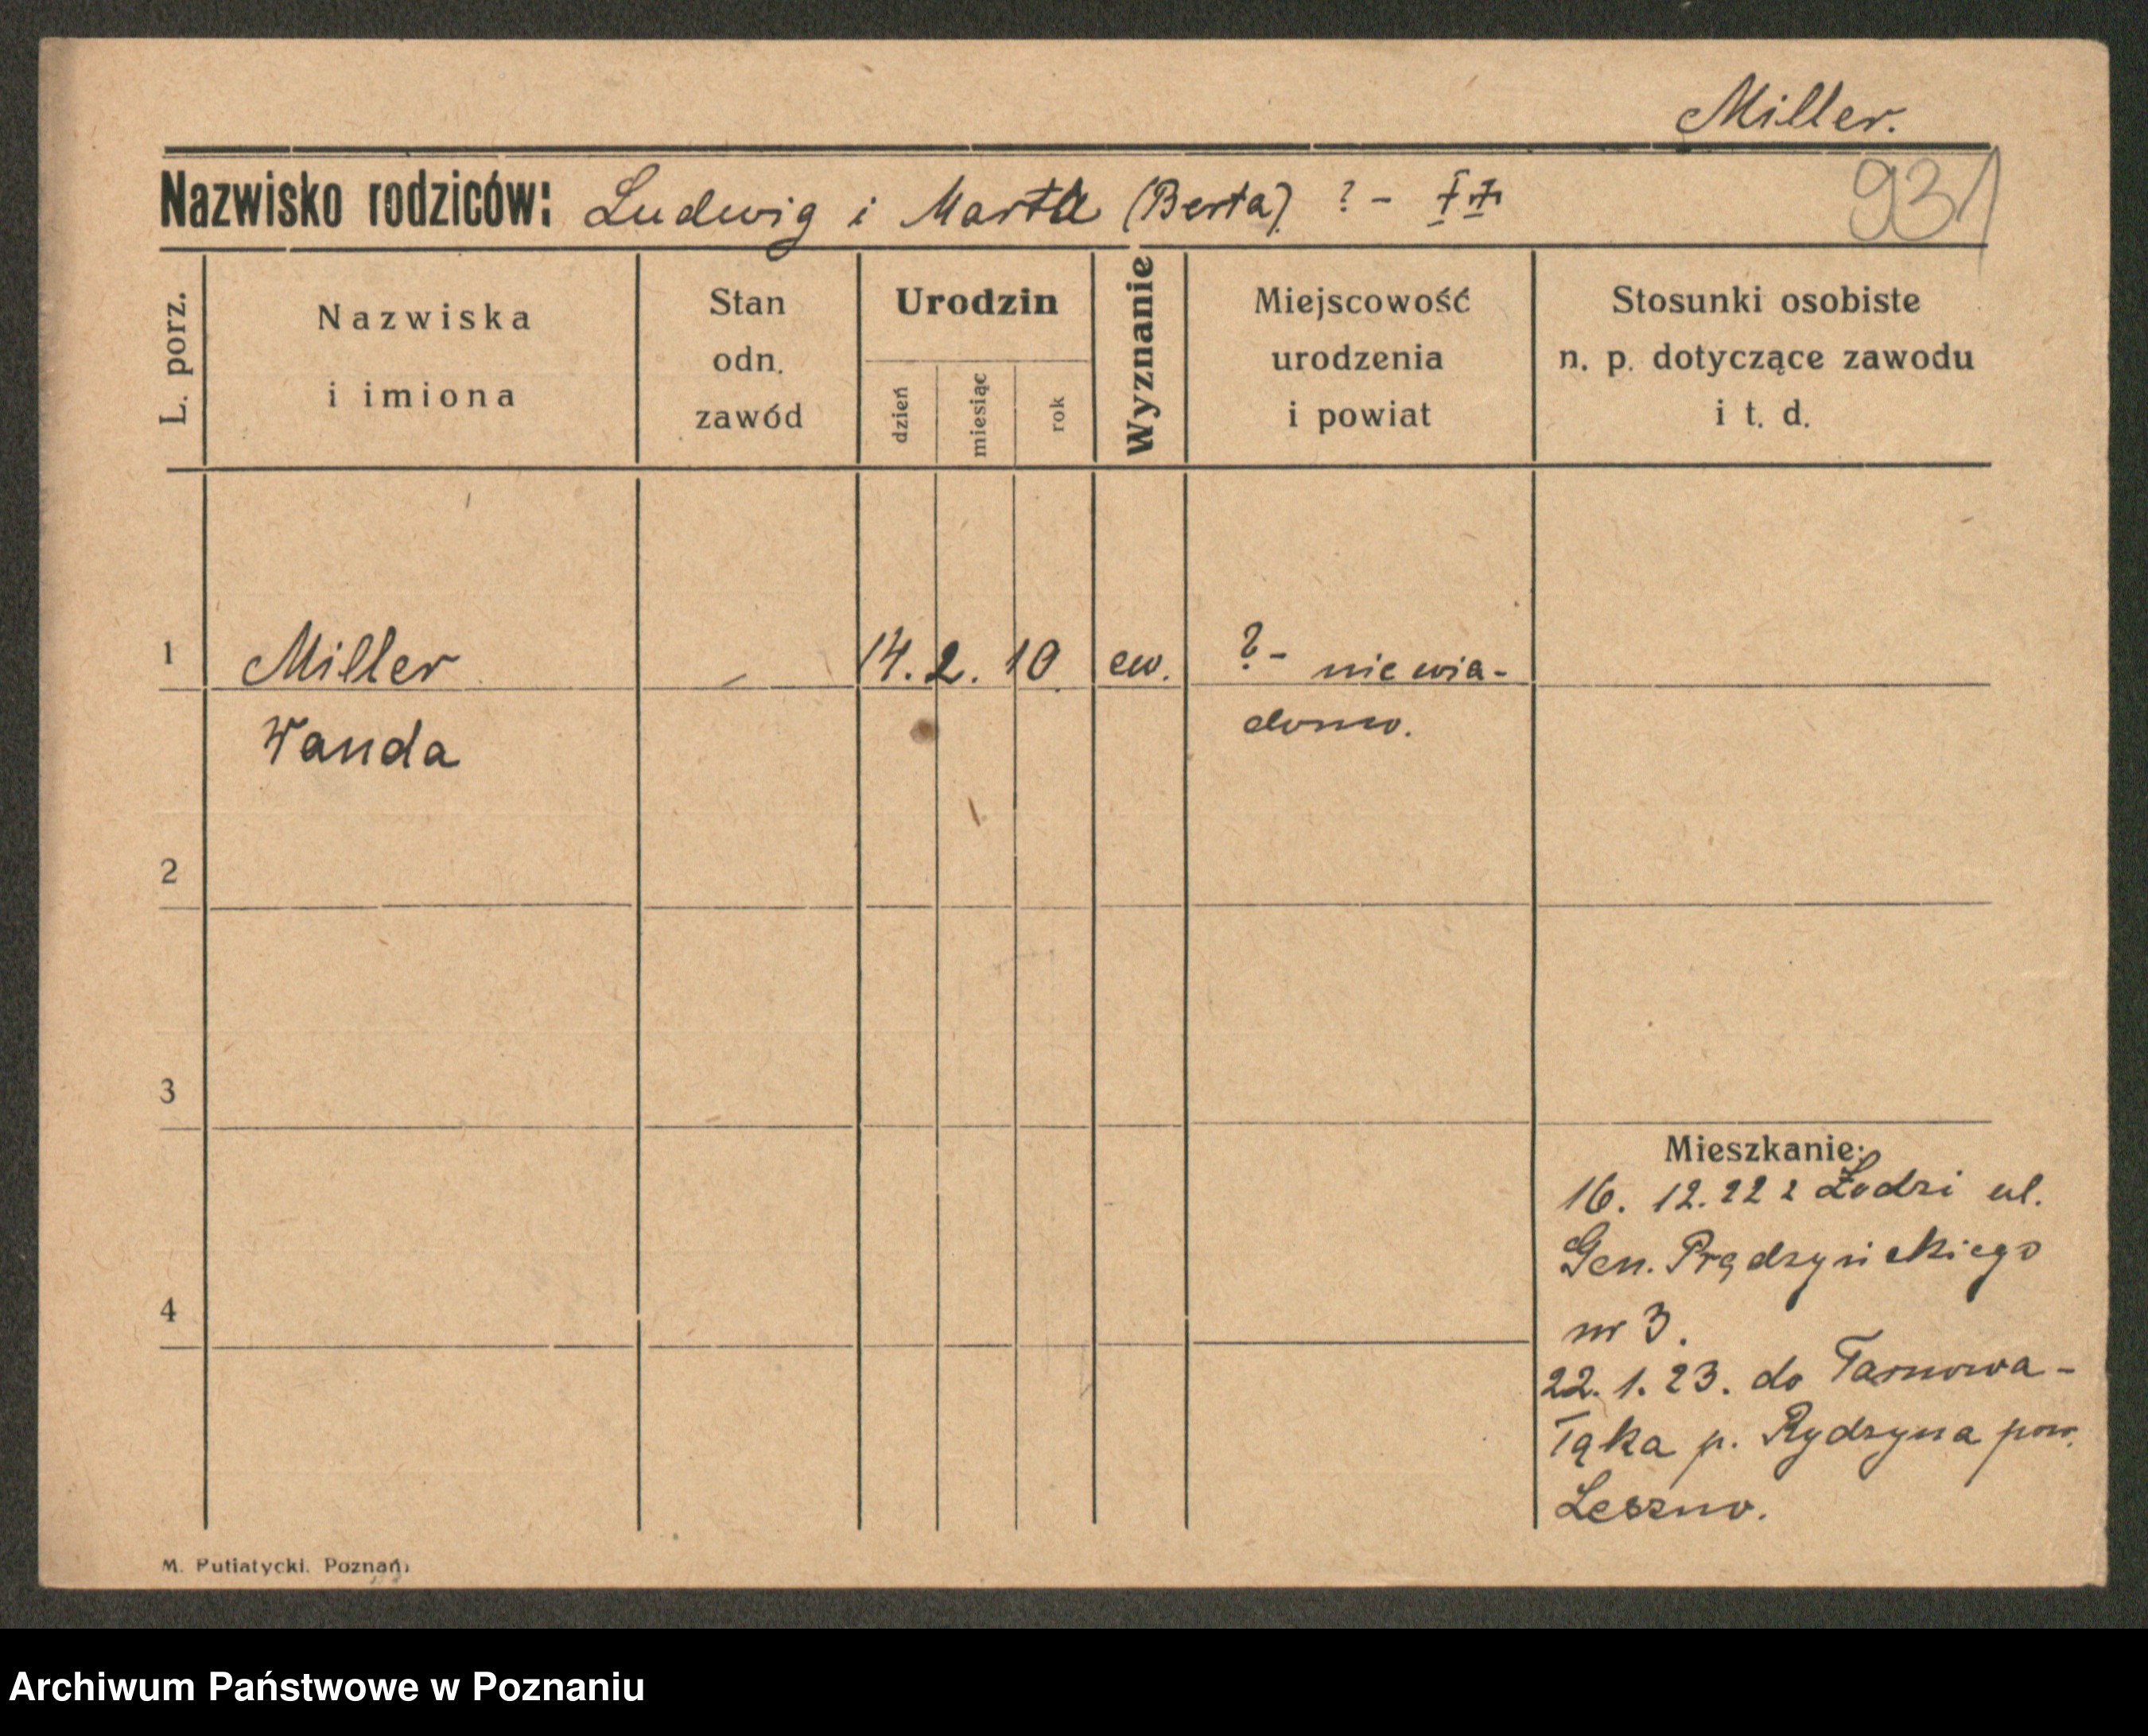 Miller.
Nazwisko rodziców: Ludwig i Marta (Berta) ? -
931
L. porz.
Nazwiska
i imiona
Stan
odn.
zawód
Urodzin
dzień
miesiąc
rok
Wyznanie
Miejscowość
urodzenia
i powiat
Stosunki osobiste
n. p. dotyczące zawodu
i t. d.
1 Miller - 14. 2. 10 ew. ? - niewia-
Wanda domo.
2
3
Mieszkanie:
16. 12. 22 z Łodzi ul.
Gen. Prądzyńskiego
4
nr 3.
22. 1. 23. do Tarnowa-
Łąka p. Rydzyna pow.
Leszno.
M. Putiatycki. Poznań
Archiwum Państwowe w Poznaniu